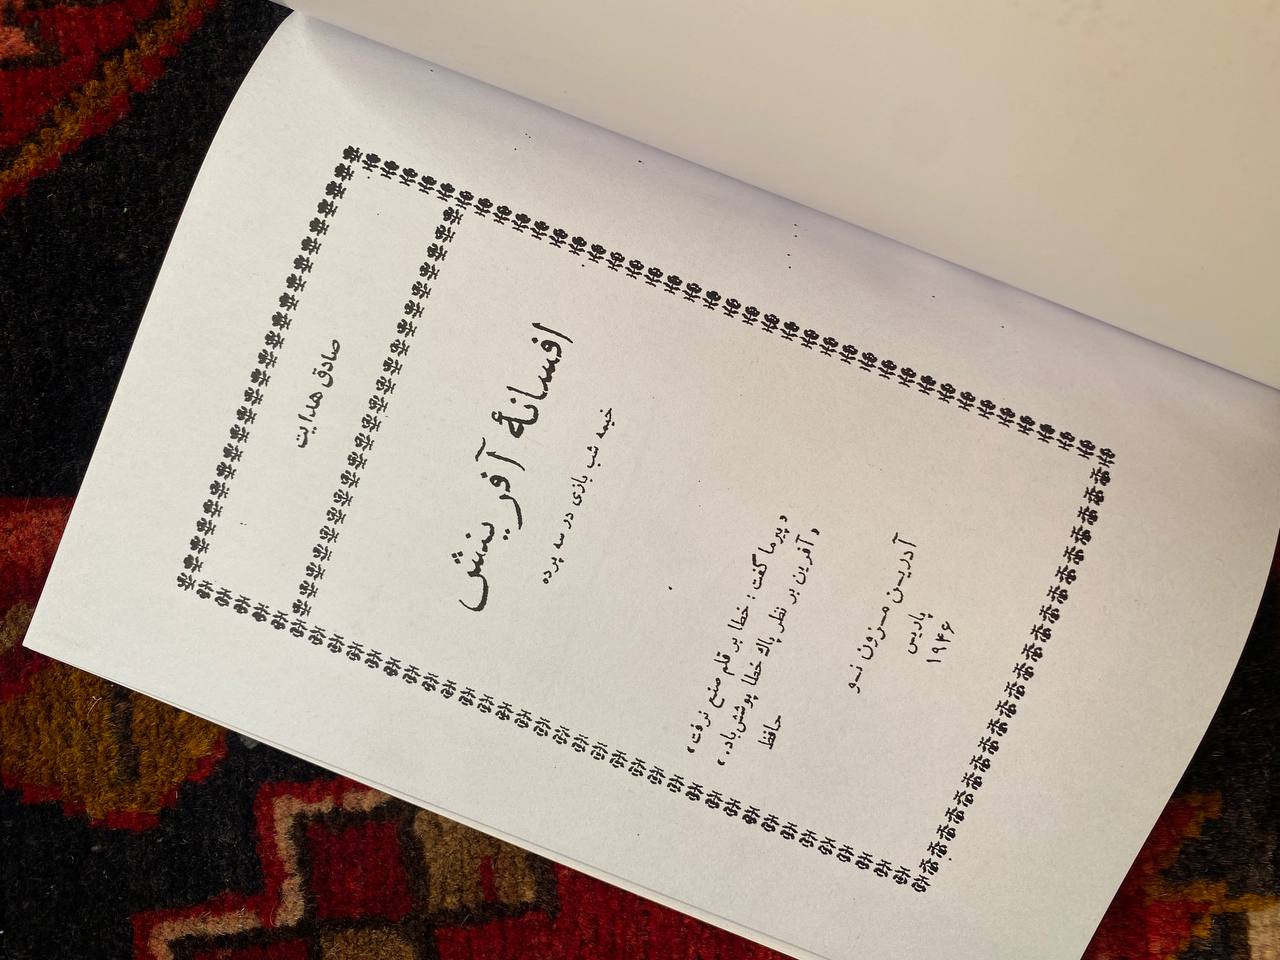 صادق هدایت
افسانهٔ آفرینش
خیمه شب بازی در سه پرده
« پیر ما گفت : خطا بر قلم صنع نرفت »
« آفرین بر نظر پاك خطا پوشش باد. »
حافظ
آدریـن مـزون نـو
پاریس
۱۹۴۶